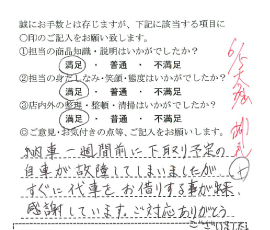 誠にお手数とは存じますが、下記に該当する項目に
○印のご記入をお願い致します。
①担当の商品知識・説明はいかがでしたか？
満足 ・ 普通 ・ 不満足
②担当の身だしなみ・笑顔・態度はいかがでしたか？
満足 ・ 普通 ・ 不満足
③店内外の整理・整頓・清掃はいかがでしたか？
満足 ・ 普通 ・ 不満足
◎ご意見・お気付きの点等、ご記入をお願いします。
納車一週間前に下取り予定の
自車が故障してしまいましたが
すぐに代車をお借りする事が出来、
感謝しています。ご対応ありがとう
ございました